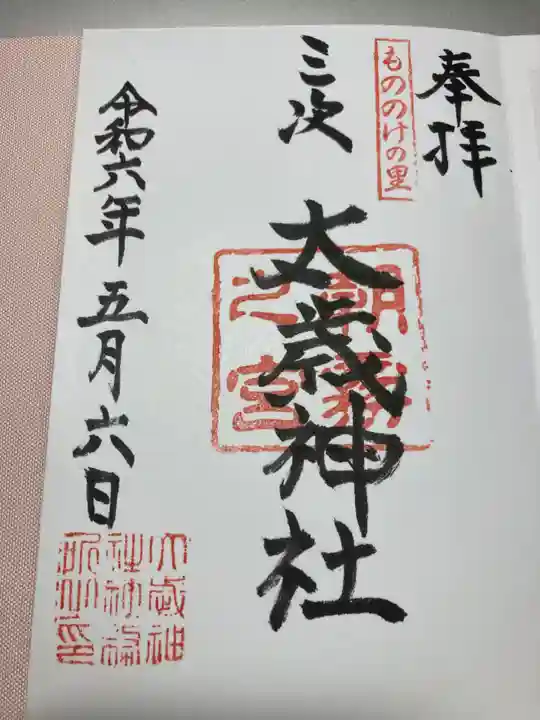 奉拝
もののけの里
三次
大歳神社
朝霧
之宮
令和六年五月六日
大歳神
社神務
所之印